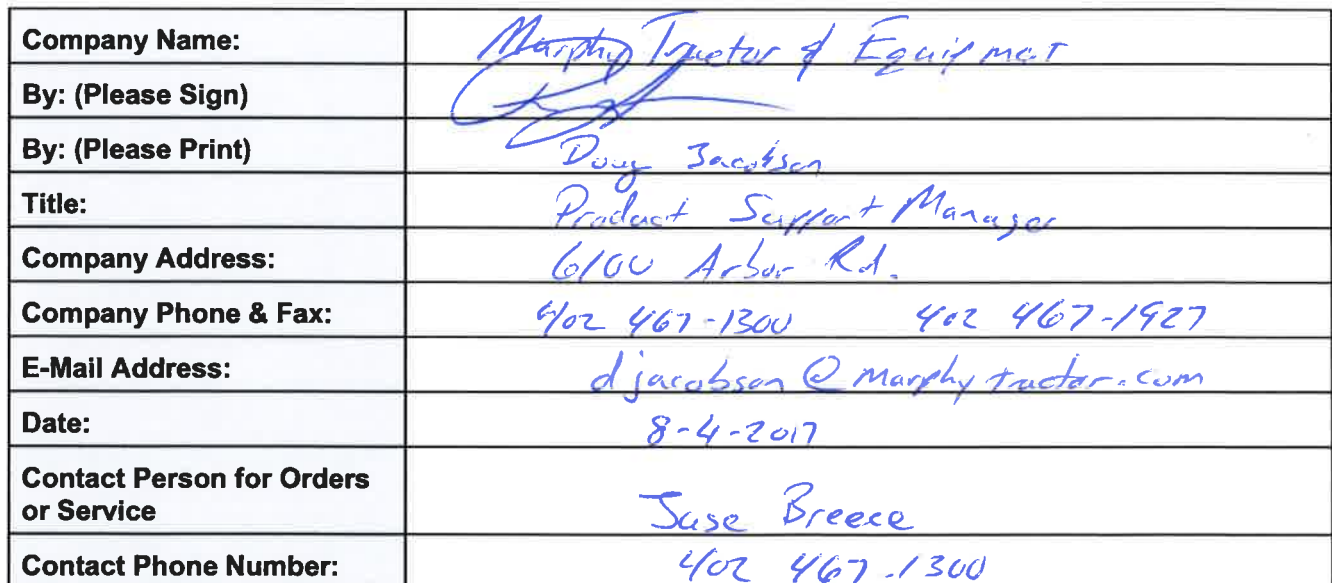 Company Name: Murphy Tractor & Equipmet
By: (Please Sign)
By: (Please Print) Doug Jacobson
Title: Product Support Manager
Company Address: 6100 Arbor Rd.
Company Phone & Fax: 402 467-1300 402 467-1927
E-Mail Address: djacobson@murphytractor.com
Date: 8-4-2017
Contact Person for Orders
or Service Jase Breece
Contact Phone Number: 402 467-1300